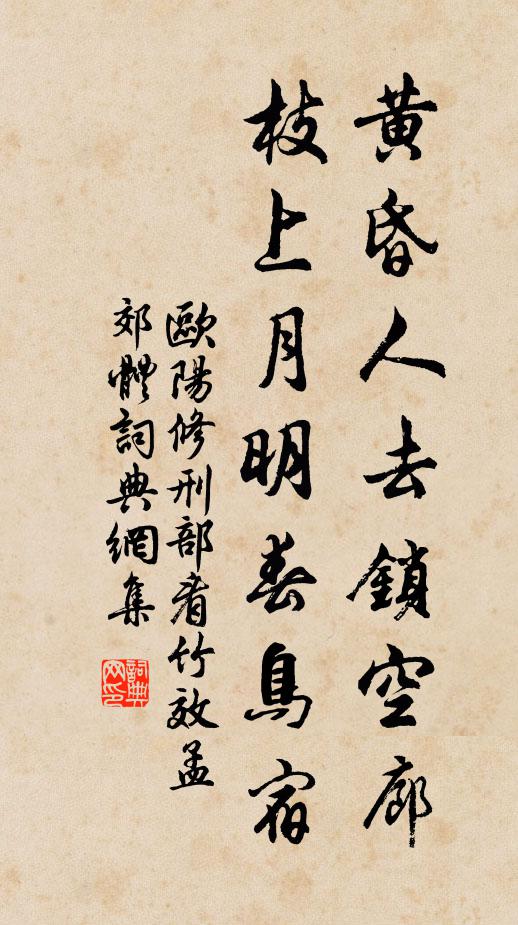 黄昏人去鎖空廊
枝上月明春鳥宿
歐陽修刑部看竹效孟
郊體詞典網集
詞典
网印